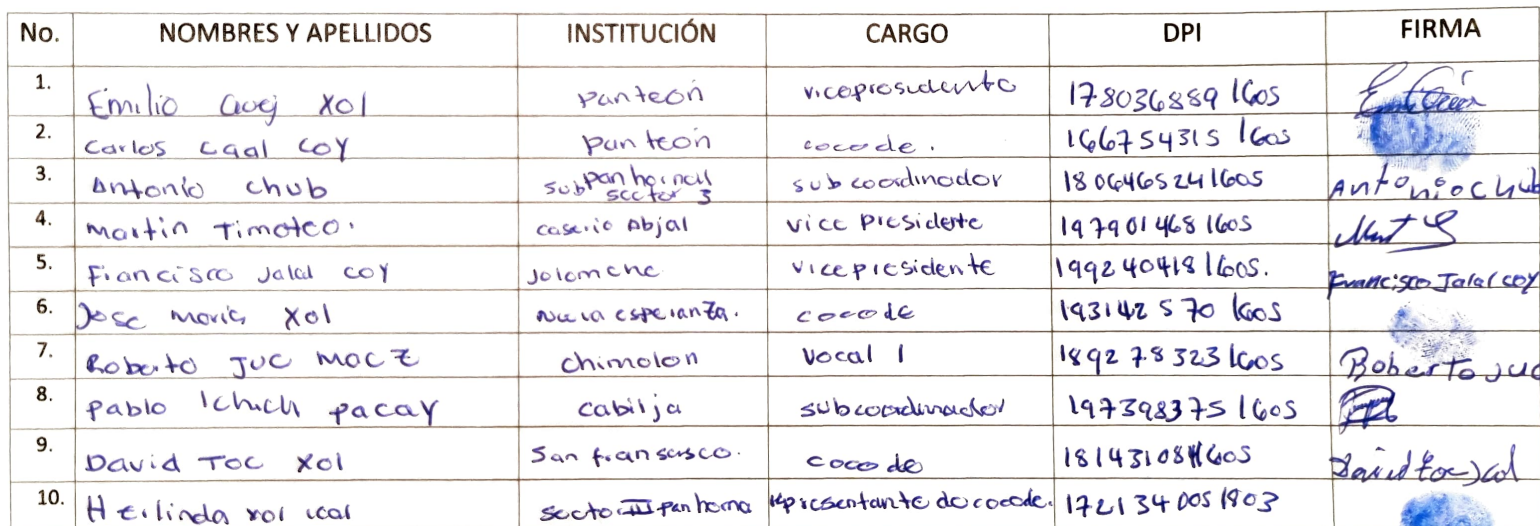 No. NOMBRES Y APELLIDOS INSTITUCIÓN CARGO DPI FIRMA
1. Emilio Xol Panteón vicepresidente 178036889 1605
2. Carlos Caal COY panteón cocode. 166754315 1605
3. Antonio chub subpanhornal sector 3 subcoordinador 180646524 1605 Antonio chub
4. martin Timoteo. caserio Abjal vice presidente 197901468 1605
5. Francisco Jalal COY Jolomche vicepresidente 199240418 1605. Francisco Jalal coy
6. Jose maria Xol nueva esperanza. cocode 193142570 1605
7. Roberto JUC MOCZ chimolon vocal 1 189278323 1605 Roberto juc
8. pablo Ichich pacay cabilja subcoordinador 197398375 1605
9. David TOC XOl San fransisco. cocode David toc
10. Herlinda xol ical sector III panhorna representante de cocode. 172134005 1803